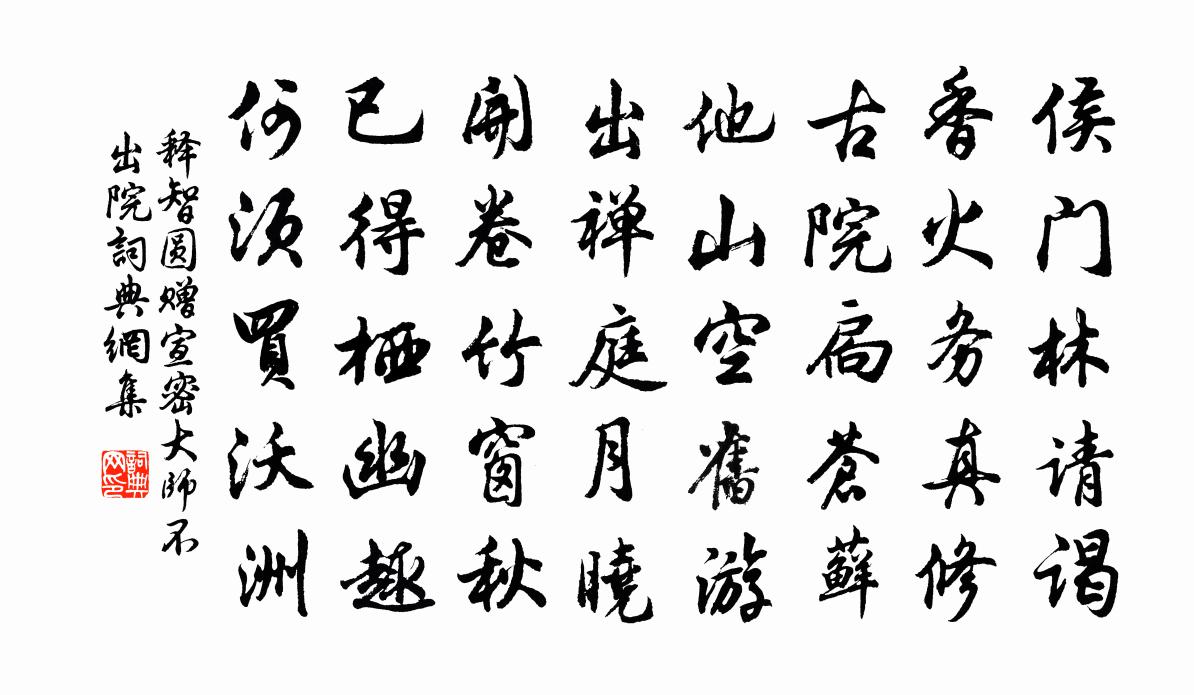 侯门林请谒
香火务真修
古院扃蒼蘚
他山空舊游
出禅庭月曉
開卷竹窗秋
已得栖幽趣
何須買沃洲
释智圆赠宣密大师不
出院詞典網集
詞典
网印